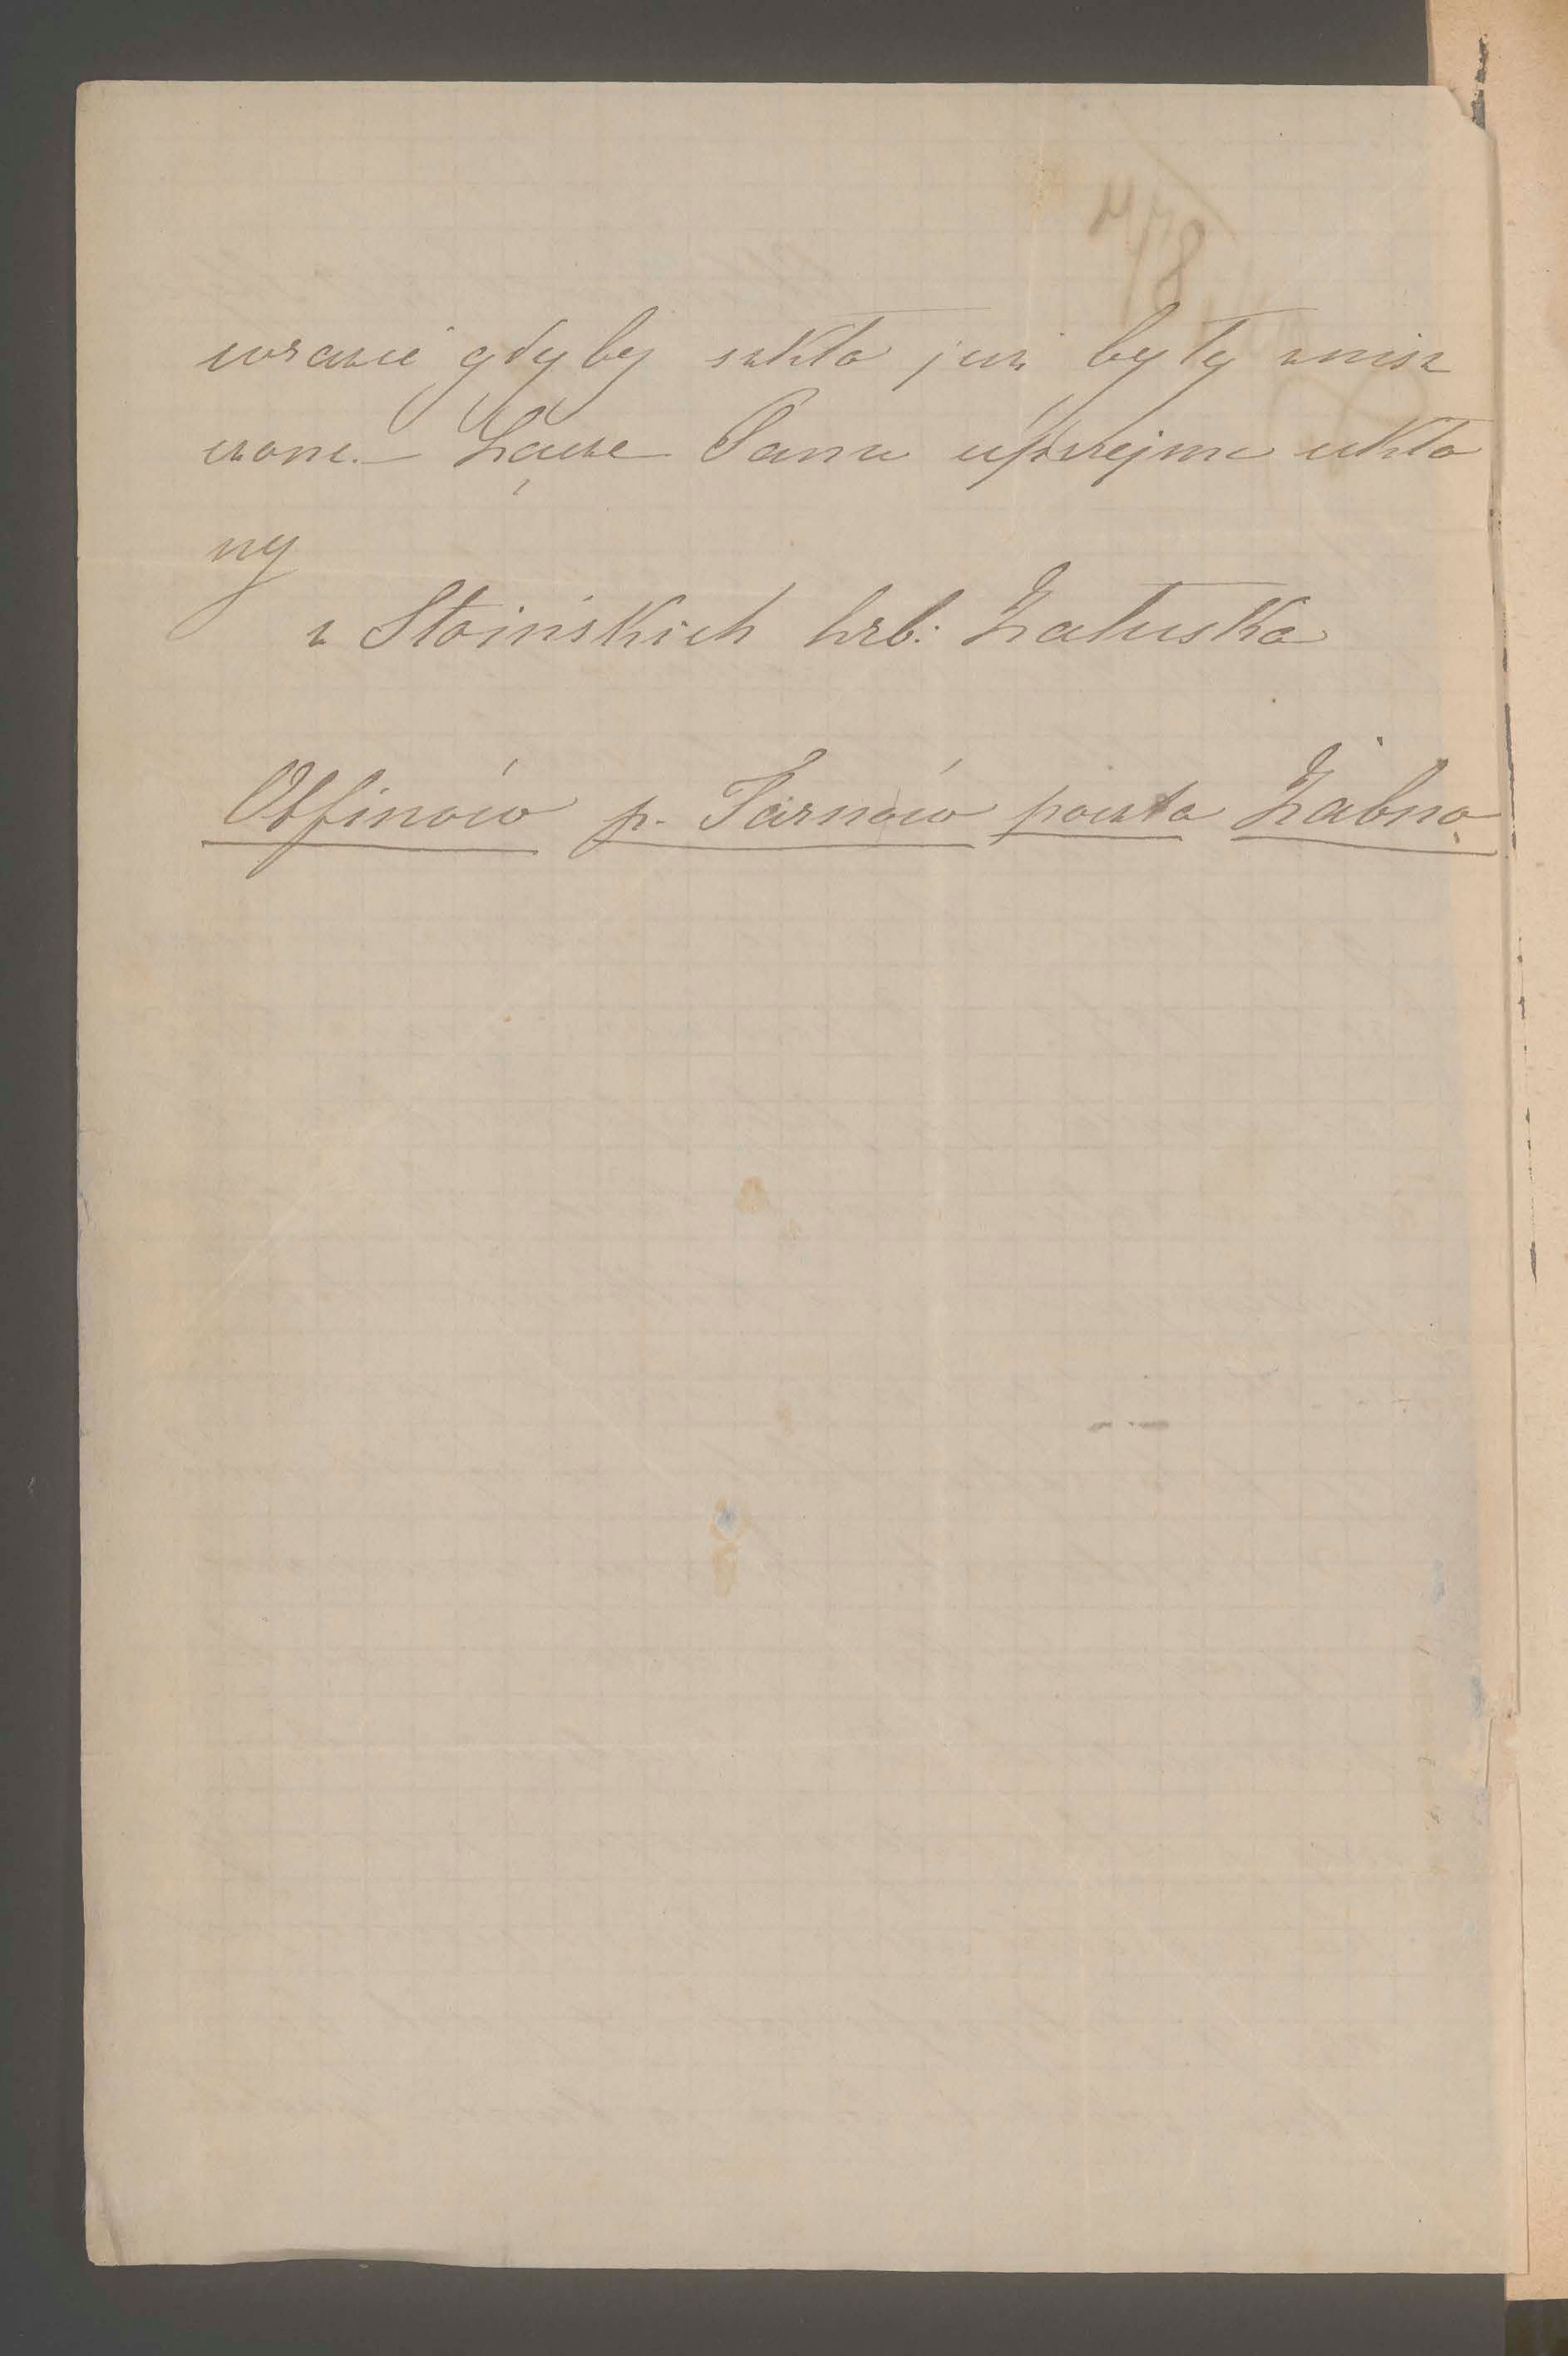 wrazie gdyby szkła już były znisz
czone. – Łączę Panu uprzejme ukło
ny
z Stoińskich hrb: Załuska
Otfinów p. Tarnów poczta Żabno